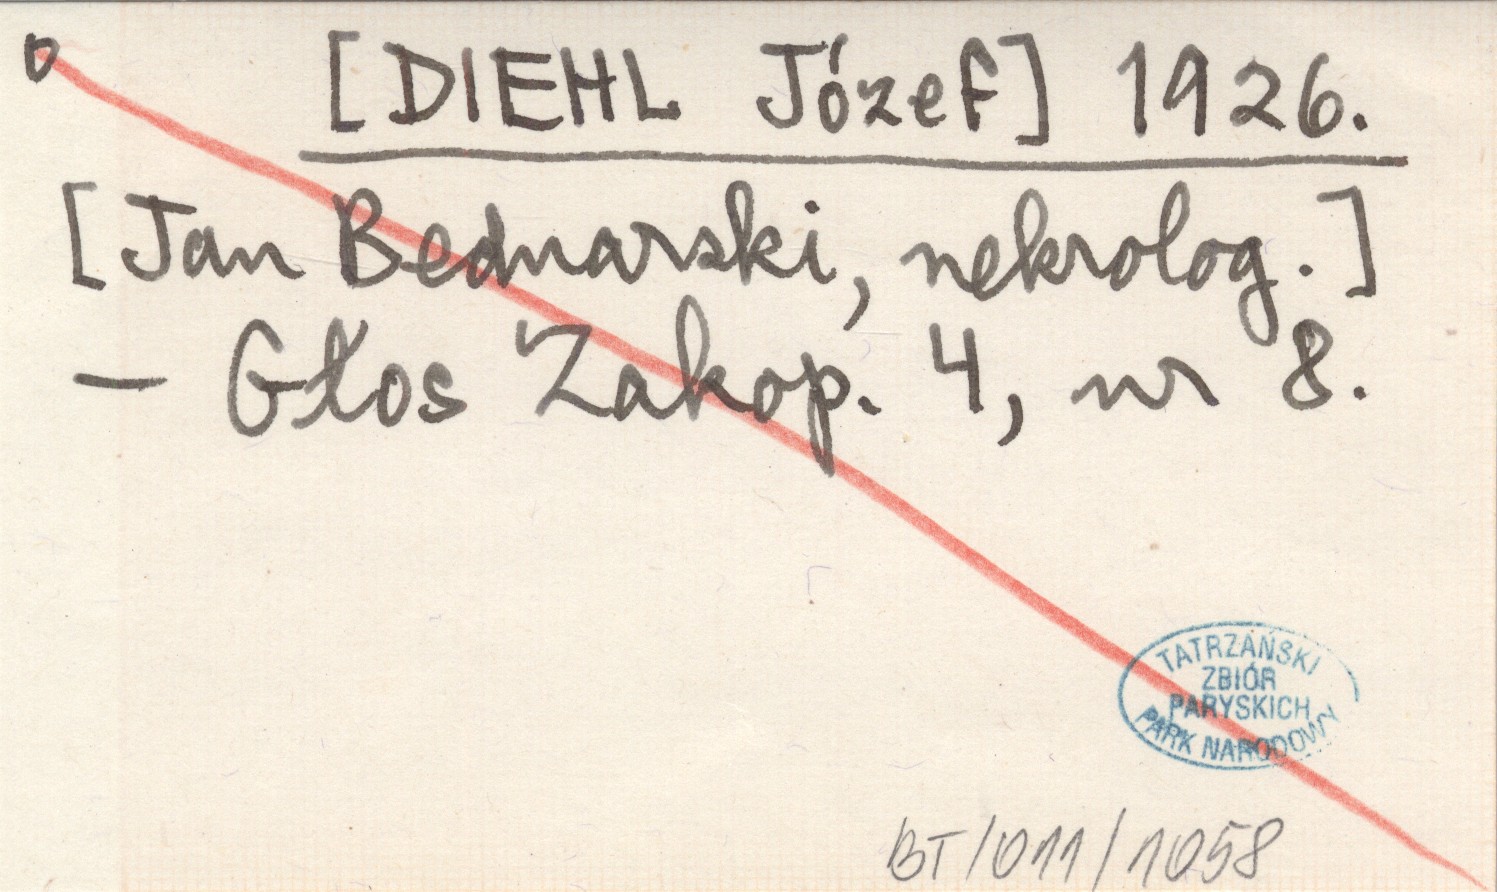 o
[DIEHL Józef] 1926.
[Jan Bednarski, nekrolog.]
— Głos Zakop. 4, nr 8.
TATRZAŃSKI
ZBIÓR
PARYSKICH
PARK NARODOWY
BT/011/1058